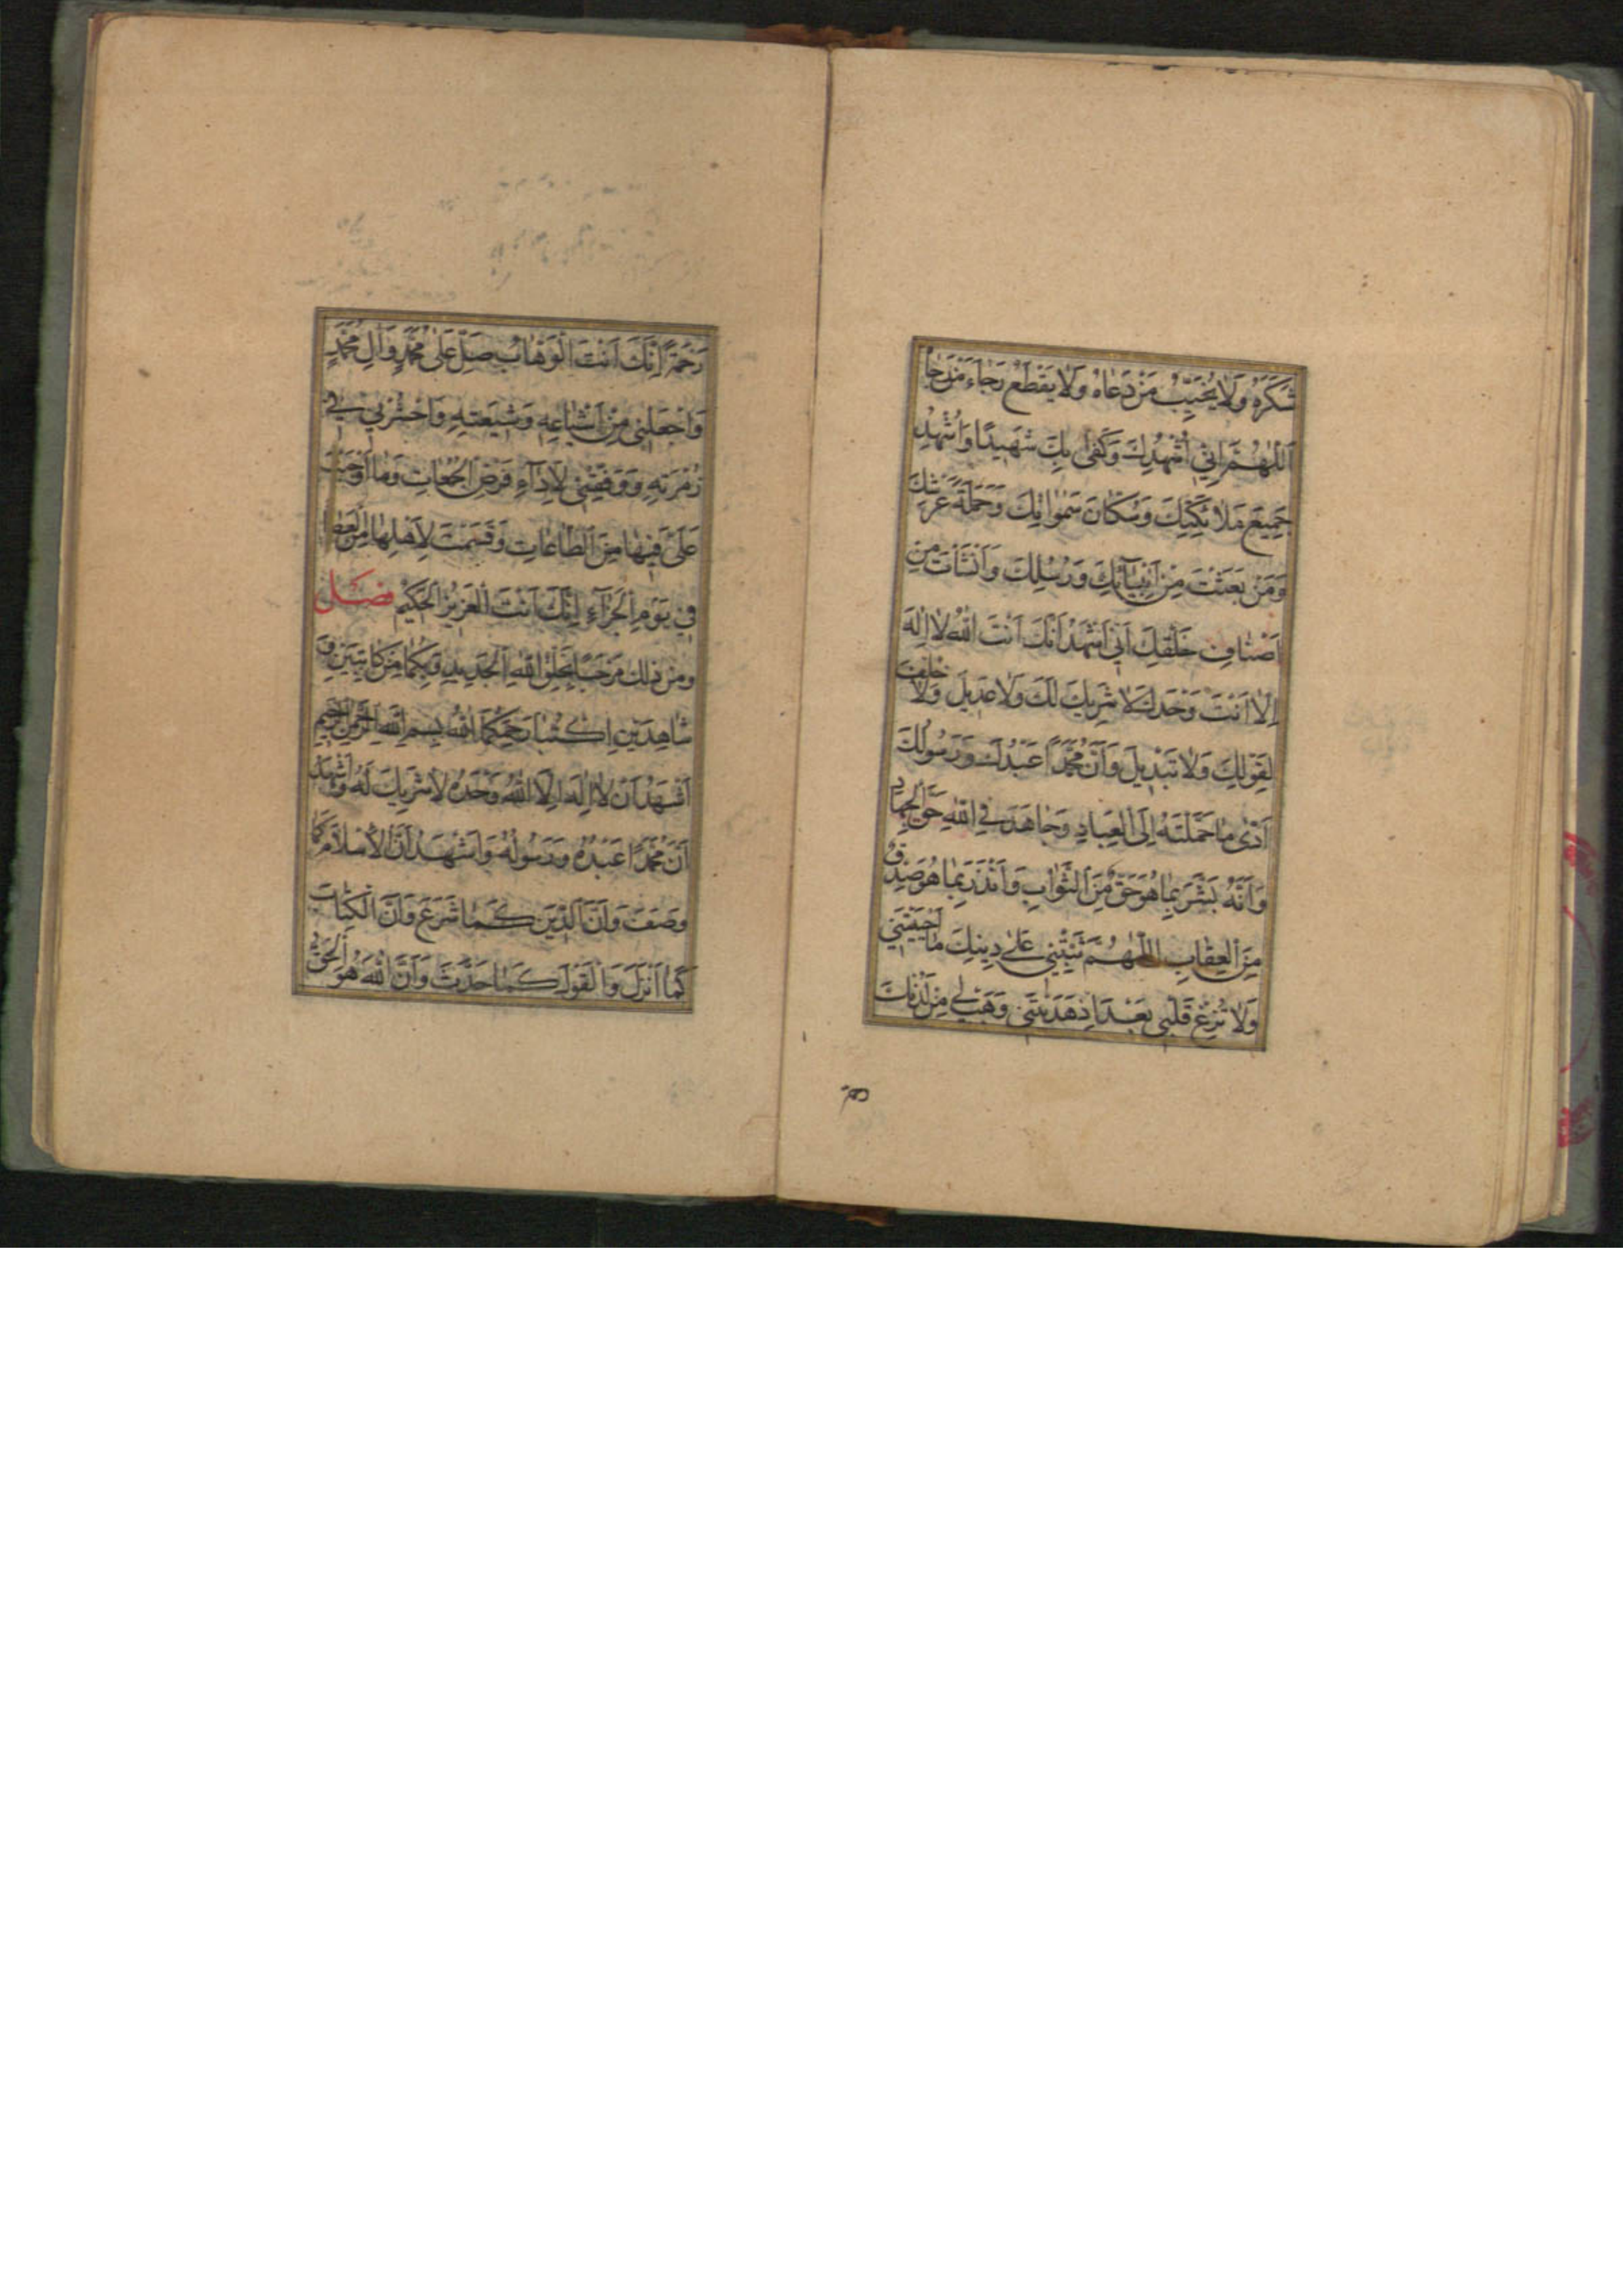 شَكَرَهُ وَلَا يُخَيِّبُ مَنْ دَعَاهُ وَلَا يَقْطَعُ رَجَاءَ مَنْ رَجَا
اَللّٰهُمَّ اِنِّي اُشْهِدُكَ وَكَفٰى بِكَ شَهِيدًا وَاُشْهِدُ
جَمِيعَ مَلَائِكَتِكَ وَسُكَّانَ سَمٰوَاتِكَ وَحَمَلَةَ عَرْشِكَ
وَمَنْ بَعَثْتَ مِنْ اَنْبِيَآئِكَ وَرُسُلِكَ وَاَنْشَأْتَ مِنْ
اَصْنَافِ خَلْقِكَ اَنِّي اَشْهَدُ اَنَّكَ اَنْتَ اللّٰهُ لَا اِلٰهَ
اِلَّا اَنْتَ وَحْدَكَ لَا شَرِيكَ لَكَ وَلَا عَدِيلَ وَلَا خُلْفَ
لِقَوْلِكَ وَلَا تَبْدِيلَ وَاَنَّ مُحَمَّدًا عَبْدُكَ وَرَسُولُكَ
اَدّٰى مَا حَمَّلْتَهُ اِلَى الْعِبَادِ وَجَاهَدَ فِي اللّٰهِ حَقَّ الْجِهَادِ
وَاَنَّهُ بَشَّرَ بِمَا هُوَ حَقٌّ مِنَ الثَّوَابِ وَاَنْذَرَ بِمَا هُوَ صِدْقٌ
مِنَ الْعِقَابِ اللّٰهُمَّ ثَبِّتْنِي عَلٰى دِينِكَ مَا اَحْيَيْتَنِي
وَلَا تُزِغْ قَلْبِي بَعْدَ اِذْ هَدَيْتَنِي وَهَبْ لِي مِنْ لَدُنْكَ
رَحْمَةً اِنَّكَ اَنْتَ الْوَهَّابُ صَلِّ عَلٰى مُحَمَّدٍ وَاٰلِ مُحَمَّدٍ
وَاجْعَلْنِي مِنْ اَشْيَاعِهِ وَشِيعَتِهِ وَاحْشُرْنِي فِي
زُمْرَتِهِ وَوَفِّقْنِي لِاَدَآءِ فَرْضِ الْجُمُعَاتِ وَمَا اَوْجَبْتَ
عَلَيَّ فِيهَا مِنَ الطَّاعَاتِ وَقَسَمْتَ لِاَهْلِهَا مِنَ الْعَطَا
فِي يَوْمِ الْجَزَآءِ اِنَّكَ اَنْتَ الْعَزِيزُ الْحَكِيمُ فصل
ومن ذلك مَرْحَبًا بِخَلْقِ اللّٰهِ الْجَدِيدِ وَبِكُمَا مِنْ كَاتِبَيْنِ وَ
شَاهِدَيْنِ اِكْتُبَا رَحِمَكُمَا اللّٰهُ بِسْمِ اللّٰهِ الرَّحْمٰنِ الرَّحِيمِ
اَشْهَدُ اَنْ لَا اِلٰهَ اِلَّا اللّٰهُ وَحْدَهُ لَا شَرِيكَ لَهُ وَاَشْهَدُ
اَنَّ مُحَمَّدًا عَبْدُهُ وَرَسُولُهُ وَاَشْهَدُ اَنَّ الْاِسْلَامَ كَمَا
وَصَفَ وَاَنَّ الدِّينَ كَمَا شَرَعَ وَاَنَّ الْكِتَابَ
كَمَا اَنْزَلَ وَالْقَوْلَ كَمَا حَدَّثَ وَاَنَّ اللّٰهَ هُوَ الْحَقُّ